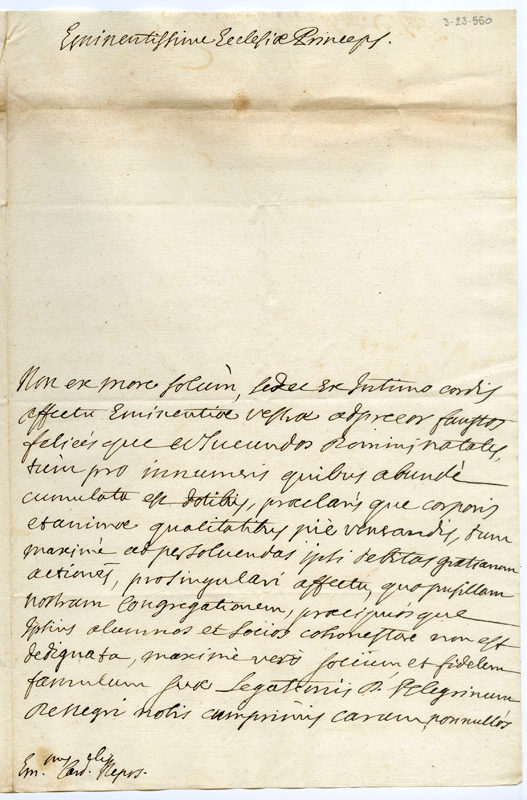 3-23-550
Eminentissime Ecclesiæ Princeps.
Non ex more solùm, sed ex Intimo cordis
affectu Eminentiæ vestræ adprecor faustos
felicés que et Iucundos Domini natales,
tùm pro innumeris quibus abundè
cumulata est dotibus, præclaris que corporis
et animæ qualitatibus piè venerandis, tum
maximè ad persoluendas ipsi debitas gratiarum
actiones, pro singulari affectu, quo pusillam
nostram Congregationem, præcipuós que
Ipsius alumnos et socios cohonestare non est
dedignata, maximè verò socium et fidelem
famulum suæ Legationis P. Pelegrinum
De Negri nobis cumprimis carum, nonnullós
Em. Card. Nepos.